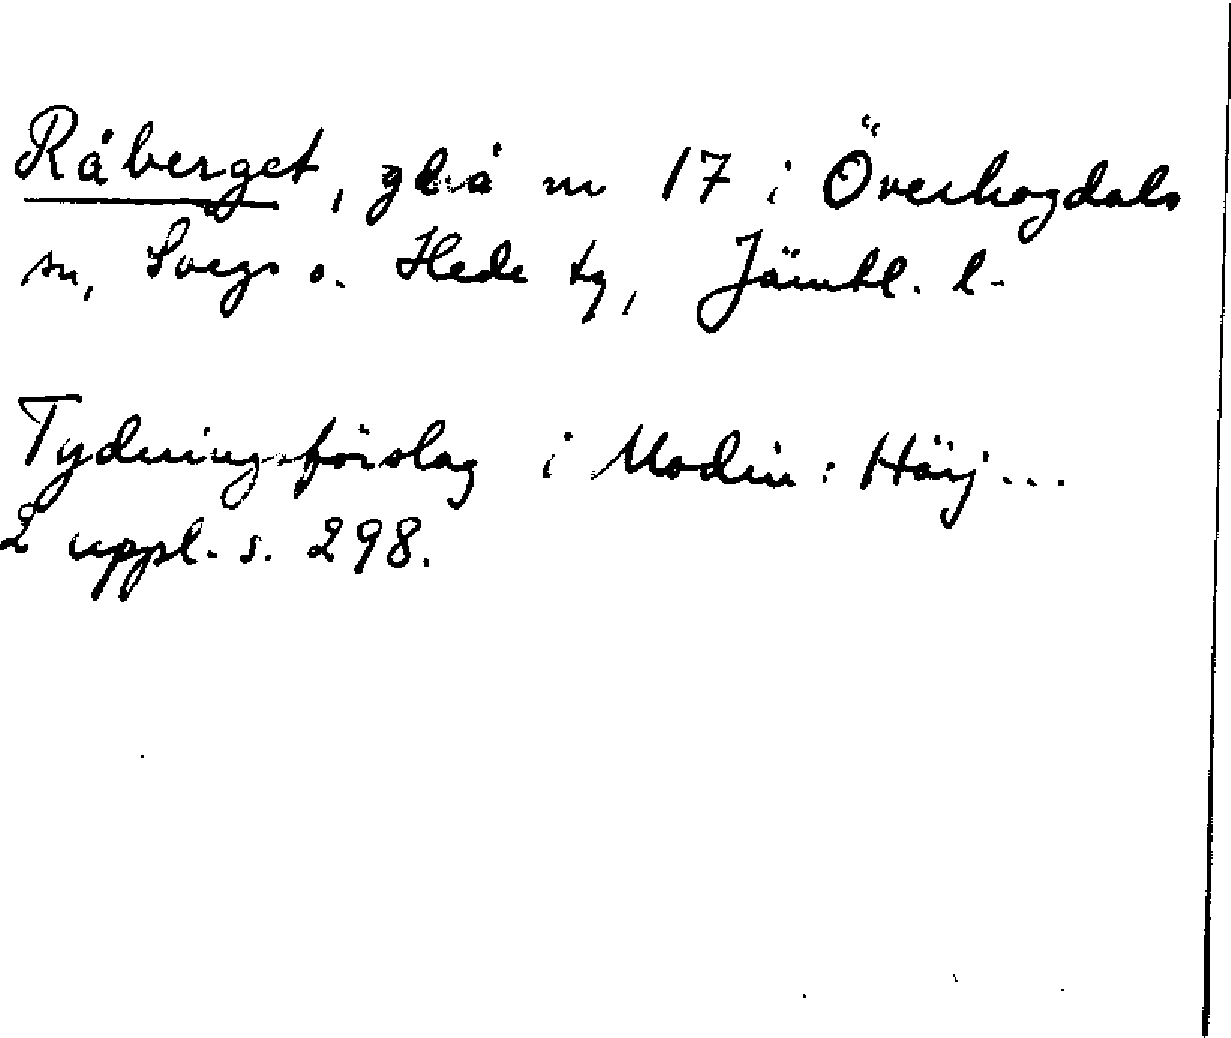 Råberget, på nr 17 i Överhogdals
sn, Svegs o. Hede tg, Jämtl. l.
Tydningsförslag i Modin: Härj...
2 uppl. s. 298.